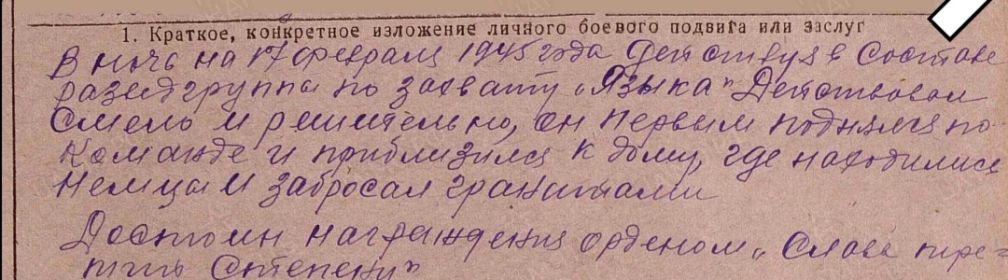 1. Краткое, конкретное изложение личного боевого подвига или заслуг
В ночь на 17 февраля 1945 года действуя в составе
разведгруппы по захвату „Языка" Действовал
смело и решительно, он первым поднялся по
команде и приблизился к дому, где находились
немцы и забросал гранатами
Достоин награждения орденом „Слава тре-
тьей степени"